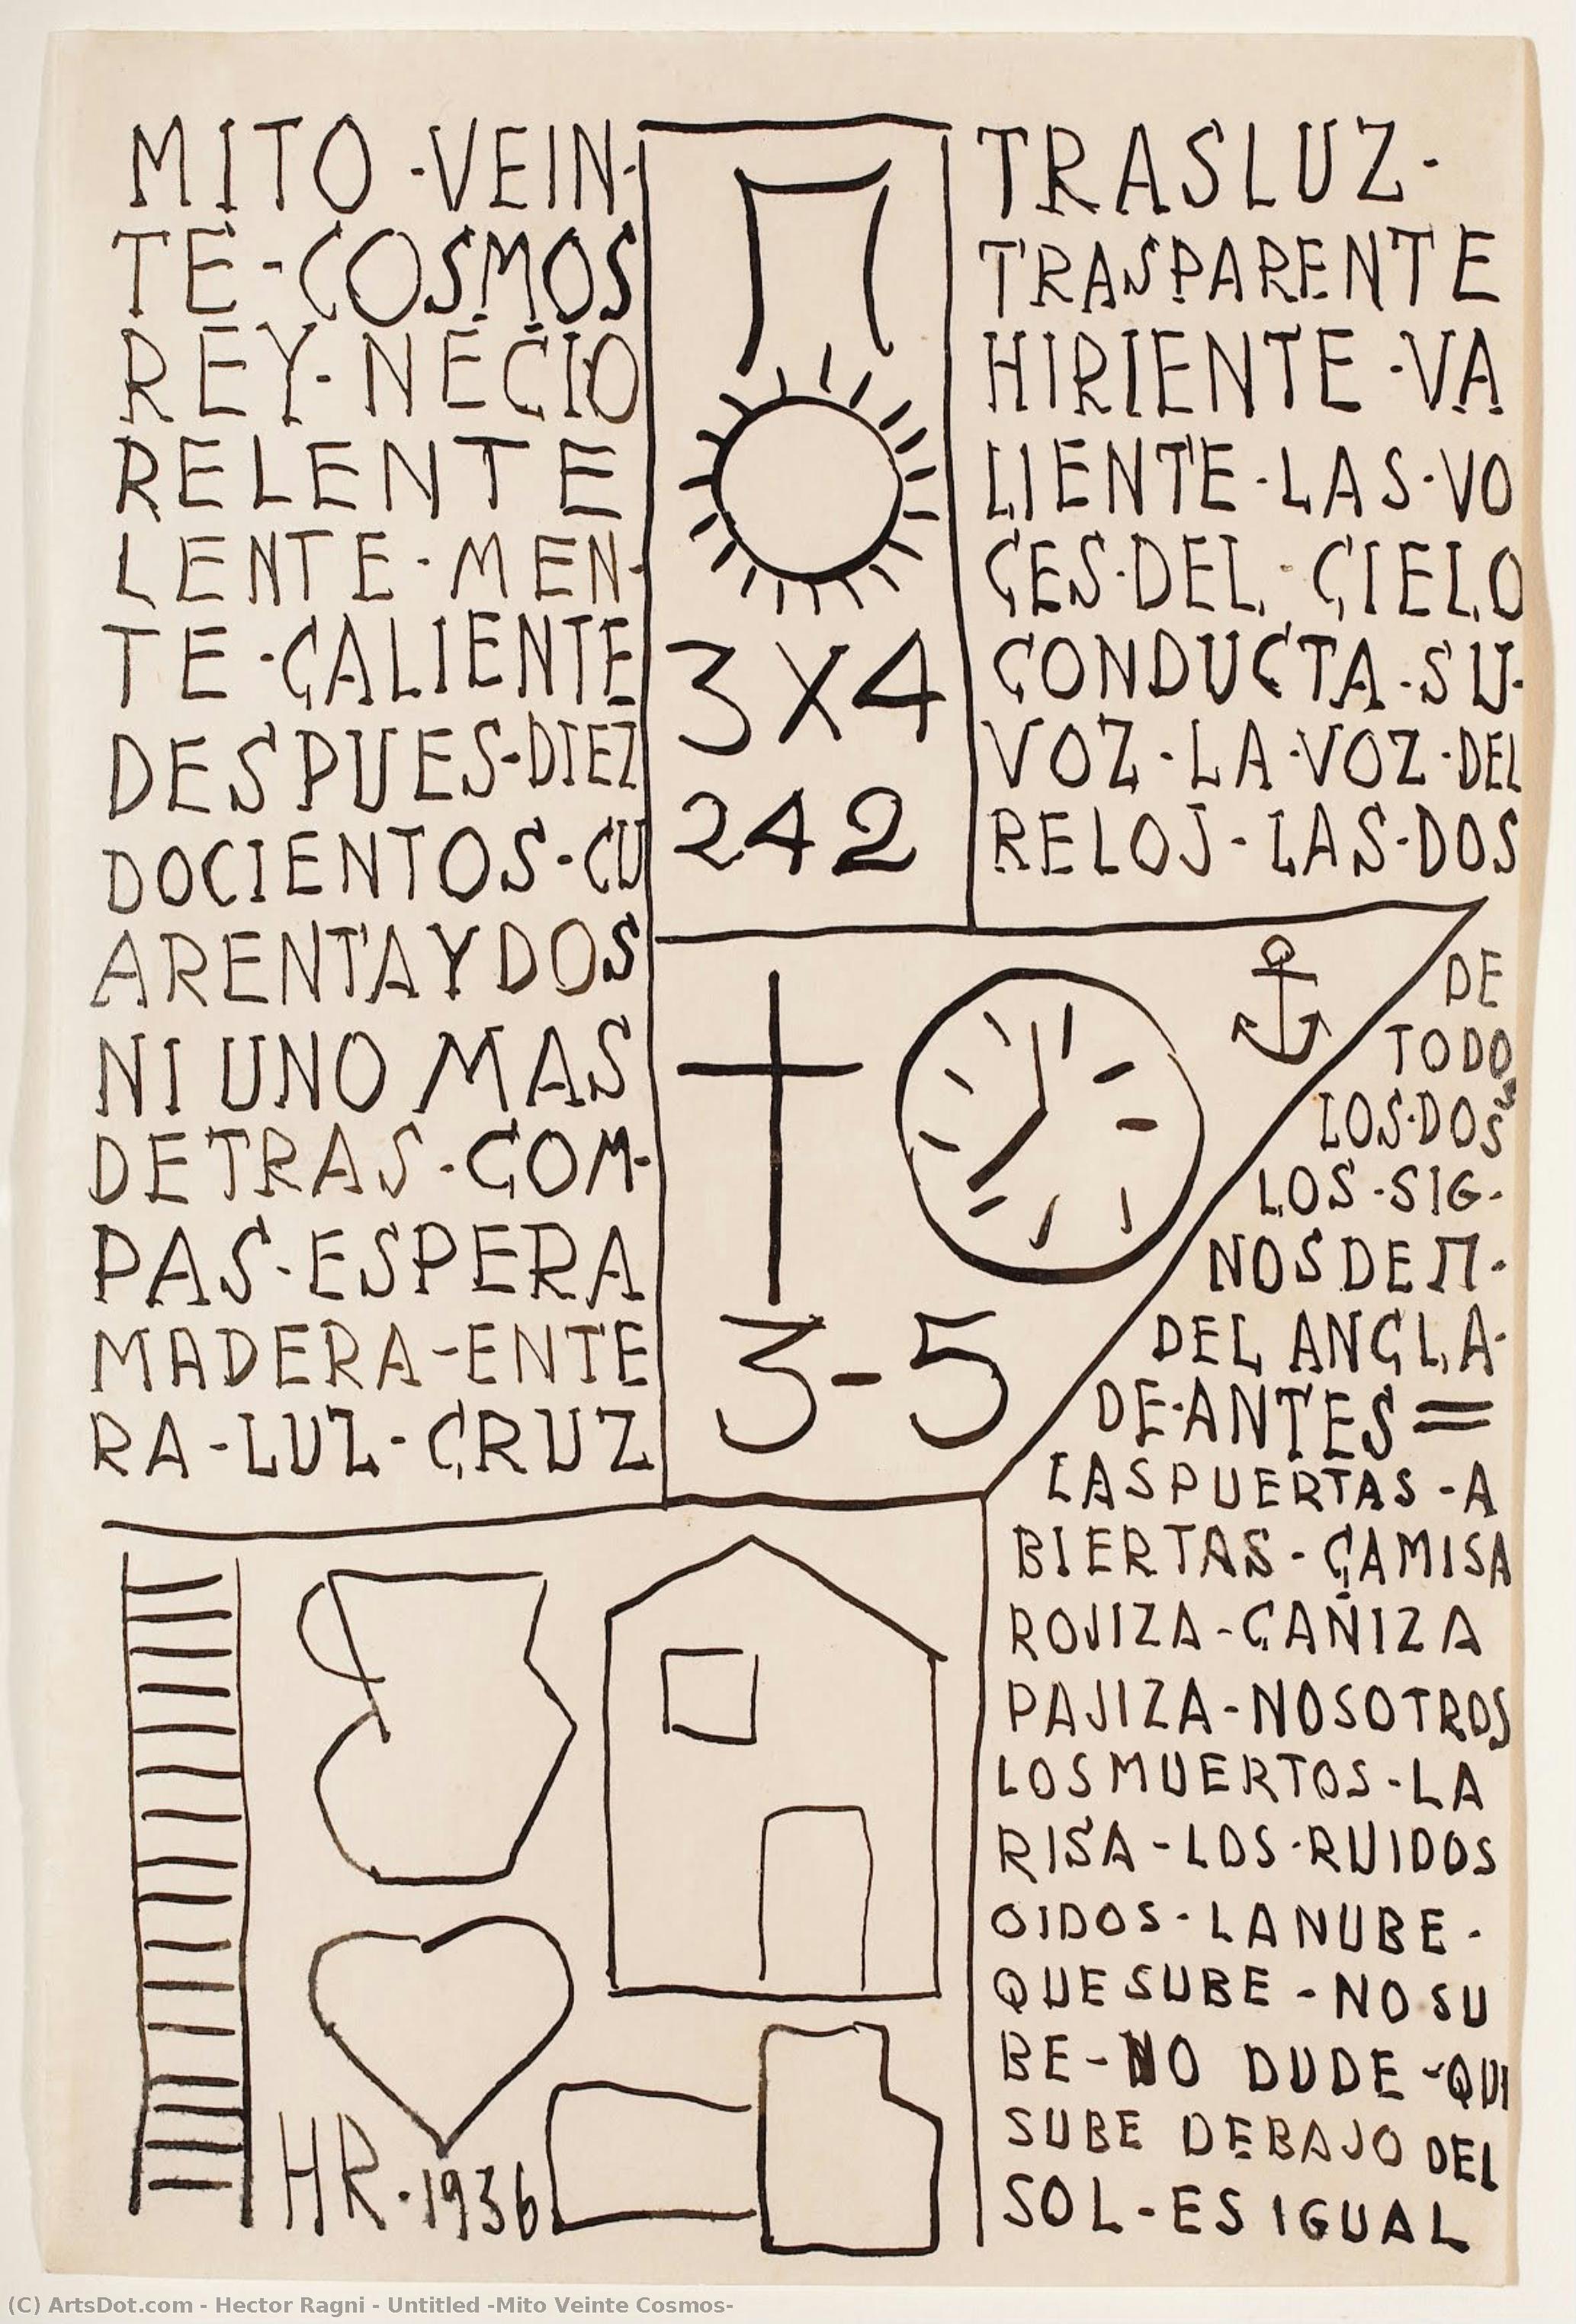 MITO·VEIN-
TE-COSMOS
REY·NECIO
RELENTE
LENTE·MEN-
TE·CALIENTE
DESPUES·DIEZ
DOCIENTOS·CU
ARENTAYDOS
NI UNO MAS
DETRAS·COM-
PAS·ESPERA
MADERA-ENTE
RA-LUZ·CRUZ
Π
3X4
242
3-5
TRASLUZ·
TRASPARENTE
HIRIENTE·VA
LIENTE·LAS·VO
CES·DEL·CIELO
CONDUCTA·SU·
VOZ·LA·VOZ·DEL
RELOJ·LAS·DOS
DE
TODOS
LOS·DOS
LOS·SIG-
NOS DE Π·
DEL ANCLA·
DE·ANTES=
LAS PUERTAS-A
BIERTAS-CAMISA
ROJIZA-CAÑIZA
PAJIZA-NOSOTROS
LOS MUERTOS-LA
RISA-LOS·RUIDOS
OIDOS·LA NUBE·
QUE SUBE-NO SU
BE-NO DUDE-QUI
SUBE DEBAJO DEL
SOL-ES IGUAL
HR·1936
(C) ArtsDot.com - Hector Ragni - Untitled -Mito Veinte Cosmos-